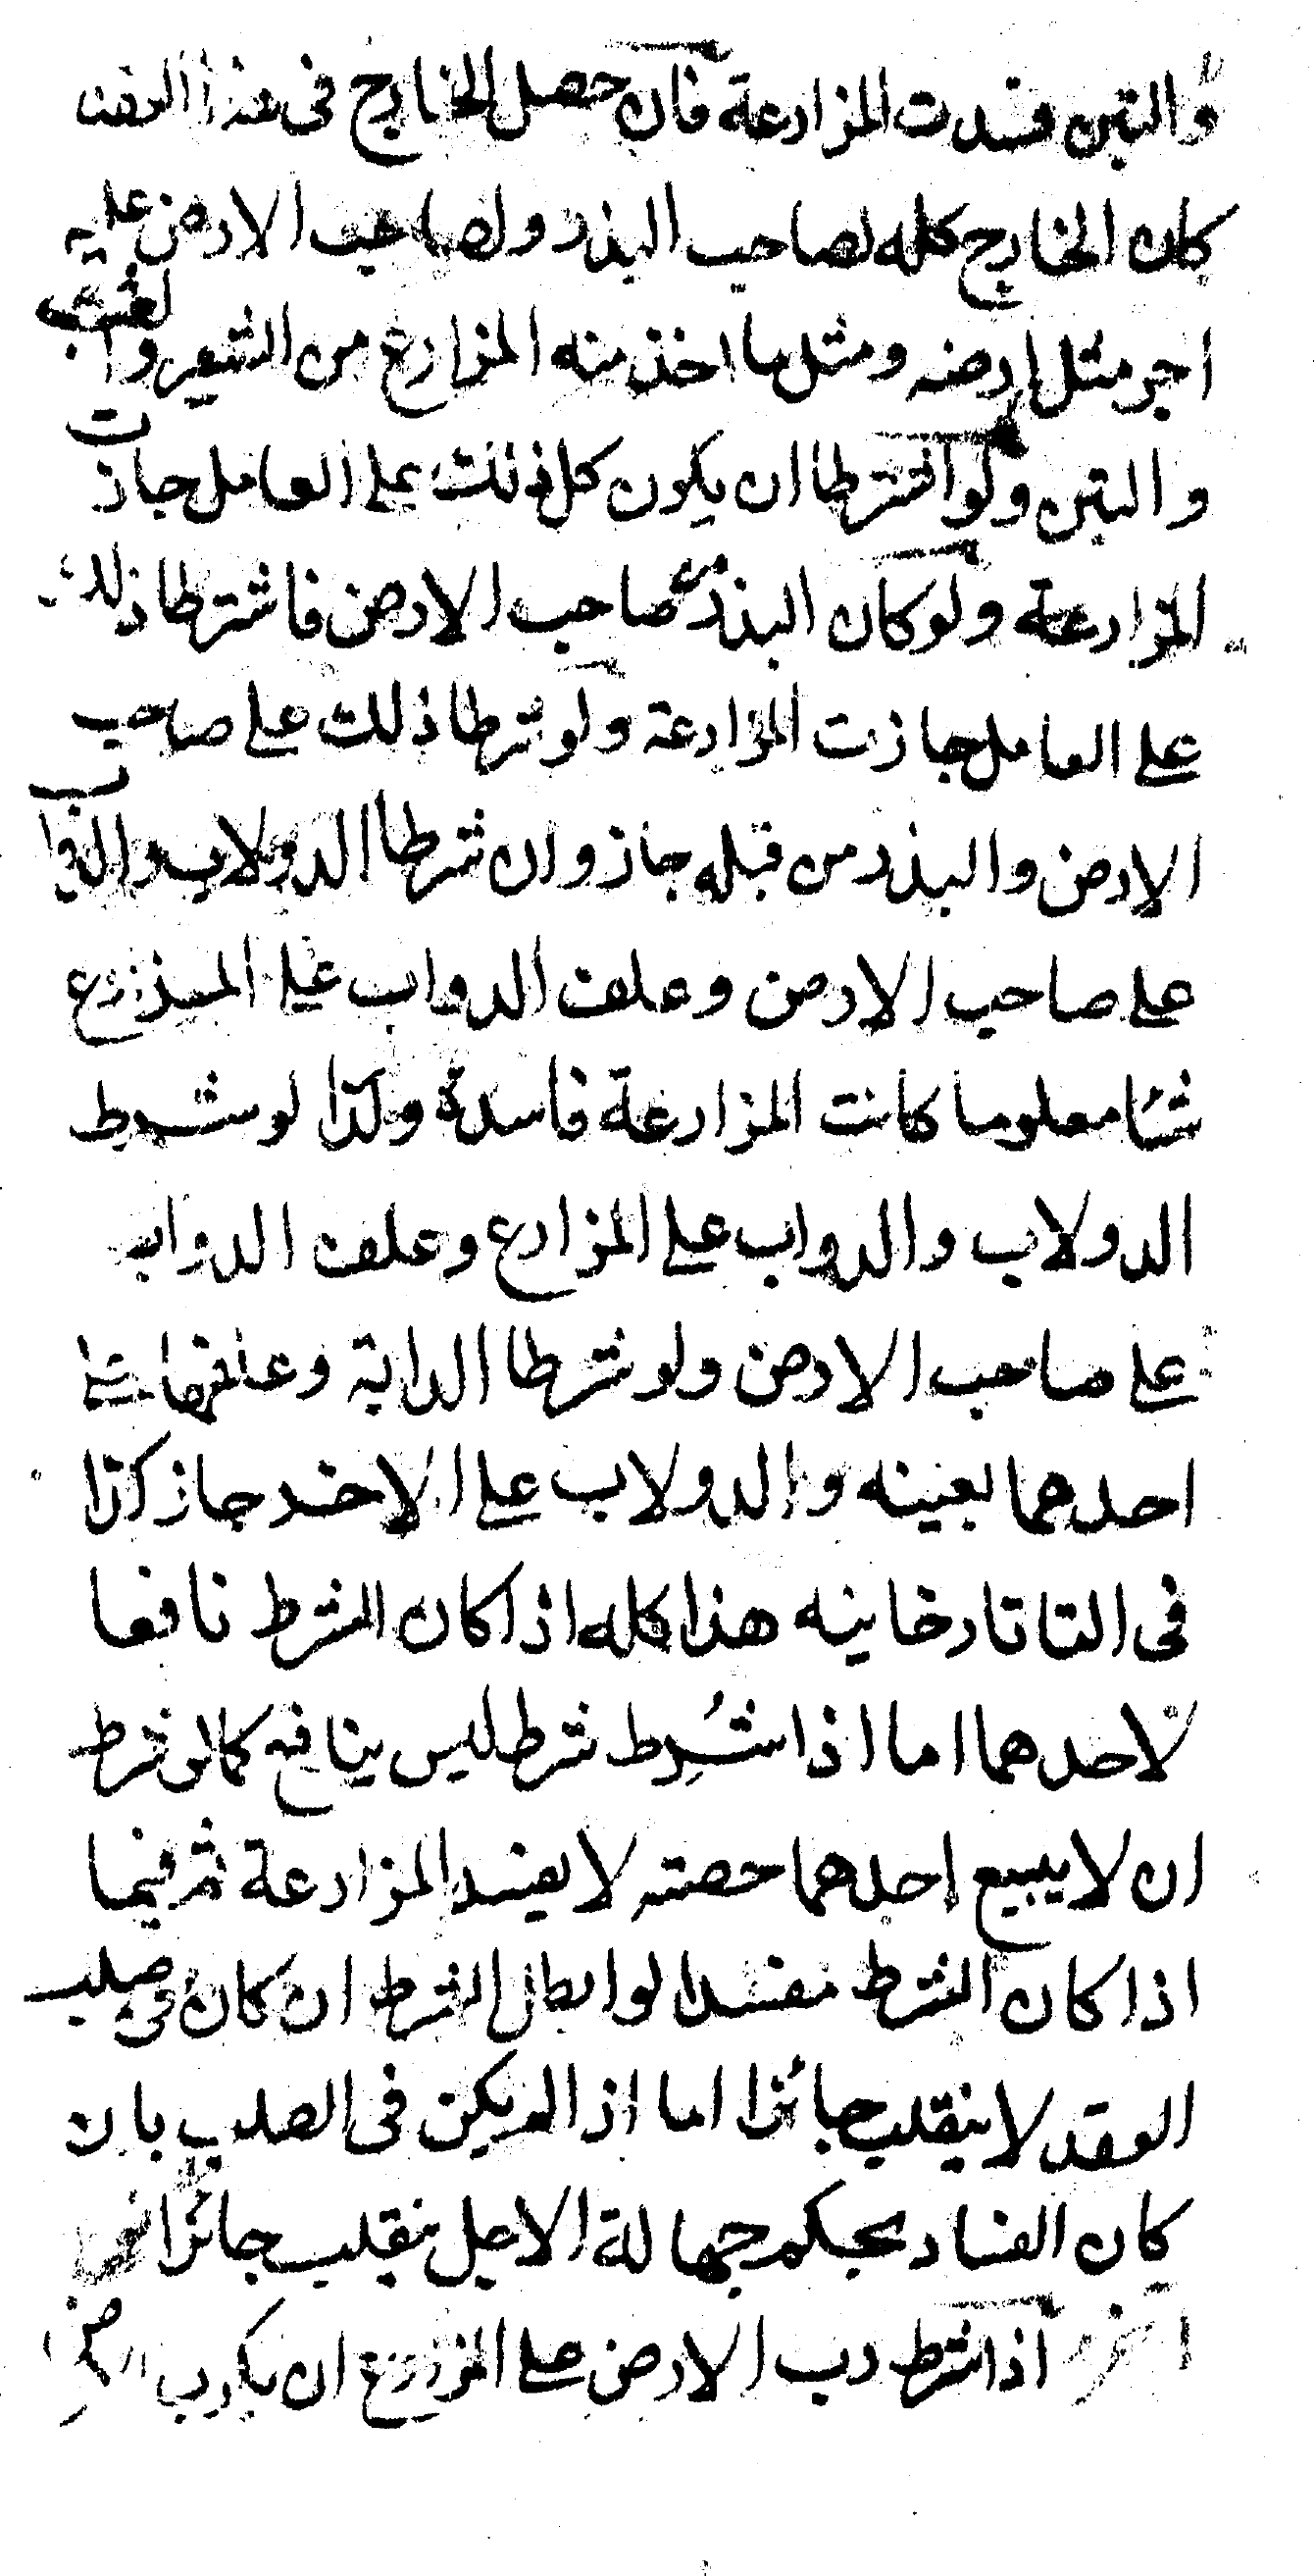 والتبن فسدت المزارعة فان حصل الخارج فى هذا العقد
كان الخارج كله لصاحب البذر ولصاحب الارض عليه
اجر مثل ارضه ومثل ما اخذ منه المزارع من الشعير والقت
والتبن ولو اشترطا ان يكون كل ذلك على العامل جازت
المزارعة ولو كان البذر من صاحب الارض فاشترطا ذلك
على العامل جازت المزارعة ولو شرطا ذلك على صاحب
الارض والبذر من قبله جاز وان شرطا الدولاب والدواب
على صاحب الارض وعلف الدواب على المزارع
شيئا معلوما كانت المزارعة فاسدة وكذا لو شرط
الدولاب والدواب على المزارع وعلف الدواب
على صاحب الارض ولو شرطا الدابة وعلفها على
احدهما بعينه والدولاب على الاخر جاز كذا
فى التاتارخانيه هذا كله اذا كان الشرط نافعا
لاحدهما اما اذا شُرِط شرط ليس بنافع كما لو شرط
ان لا يبيع احدهما حصته لا يفسد المزارعة ثم فيما
اذا كان الشرط مفسدا لو ابطل الشرط ان كان فى صلب
العقد لا ينقلب جائزا اما اذا لم يكن فى الصلب بان
كان الفساد بحكم جهالة الاجل ينقلب جائزا
اذا شرط رب الارض على المزارع ان يكرب